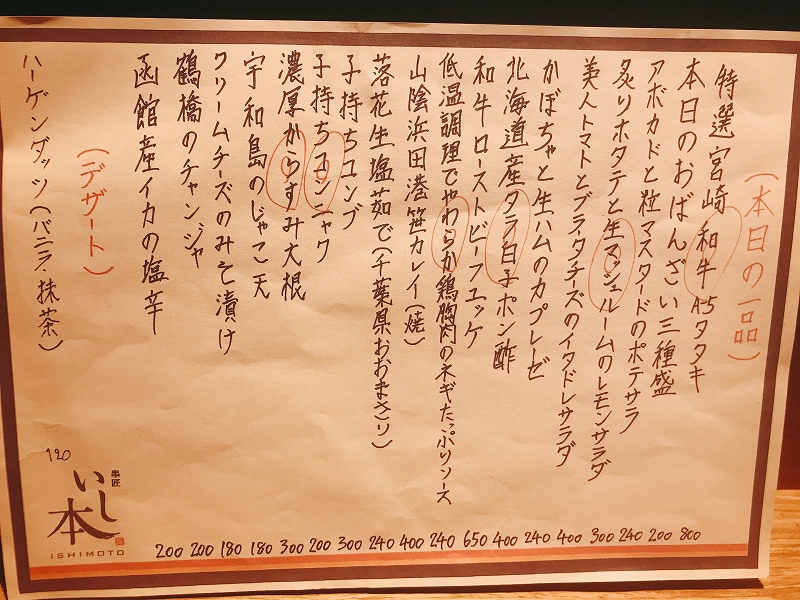 (本日の一品)
特選宮崎和牛A5タタキ 800
本日のおばんざい三種盛 200
アボカドと粒マスタードのポテサラ 240
炙りホタテと生マッシュルームのレモンサラダ 300
美人トマトとブラータチーズのイタドレサラダ 400
かぼちゃと生ハムのカプレーゼ 240
北海道産タラ白子ポン酢 400
和牛ローストビーフユッケ 650
低温調理でやわらか鶏胸肉のネギたっぷりソース 240
山陰浜田港笹カレイ(焼) 400
落花生塩茹で(千葉県おおまさり) 240
子持ちコンブ 300
子持ちコンニャク 200
濃厚からすみ大根 300
宇和島のじゃこ天 180
クリームチーズのみそ漬け 180
鶴橋のチャンジャ 200
函館産イカの塩辛 200
(デザート)
ハーゲンダッツ(バニラ・抹茶) 120
串匠
いし本
ISHIMOTO